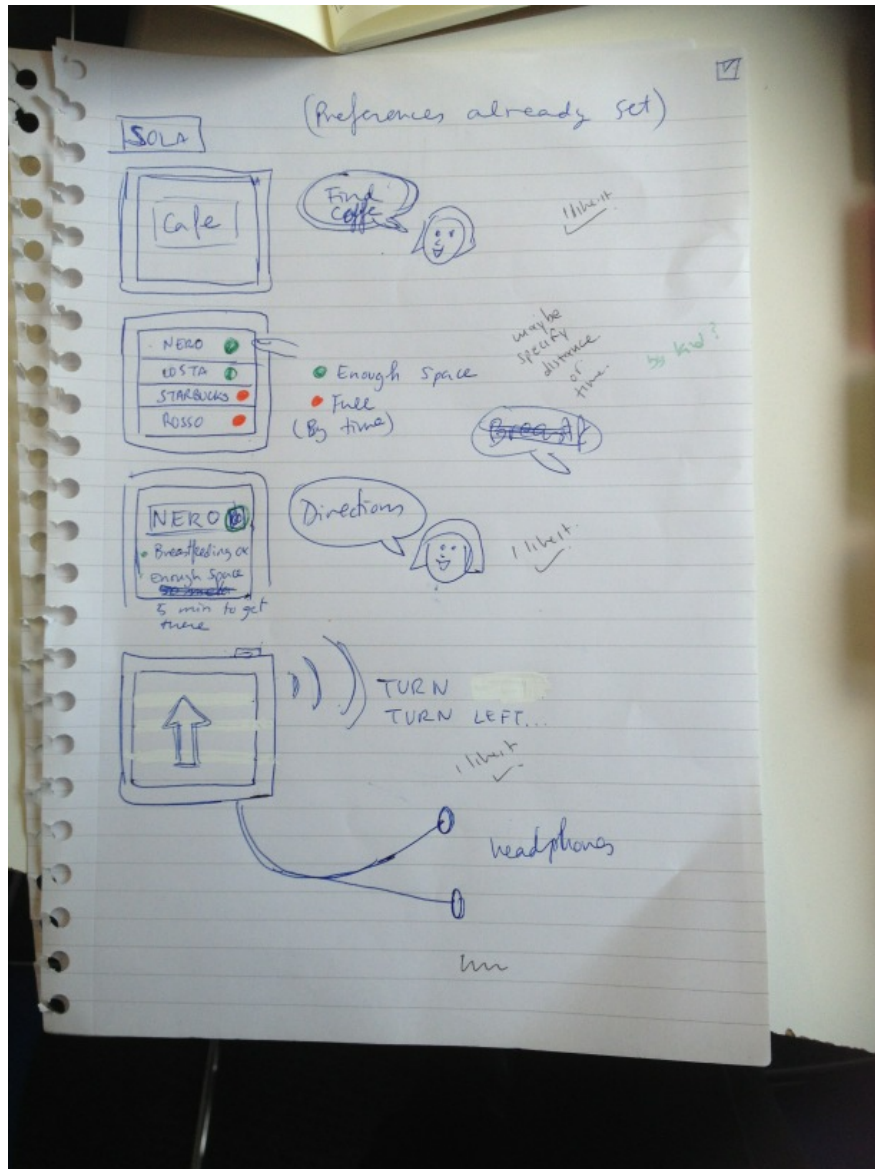 (Preferences already set)
SOLA
Cafe
Find
Coffe
I like it
NERO
COSTA
STARBUCKS
ROSSO
Enough Space
Full
(By time)
maybe
specify
distance
or
time.
by kind?
NERO
• Breastfeeding ok
enough space
5 min to get
there
Directions
I like it.
TURN
TURN LEFT...
I like it
headphones